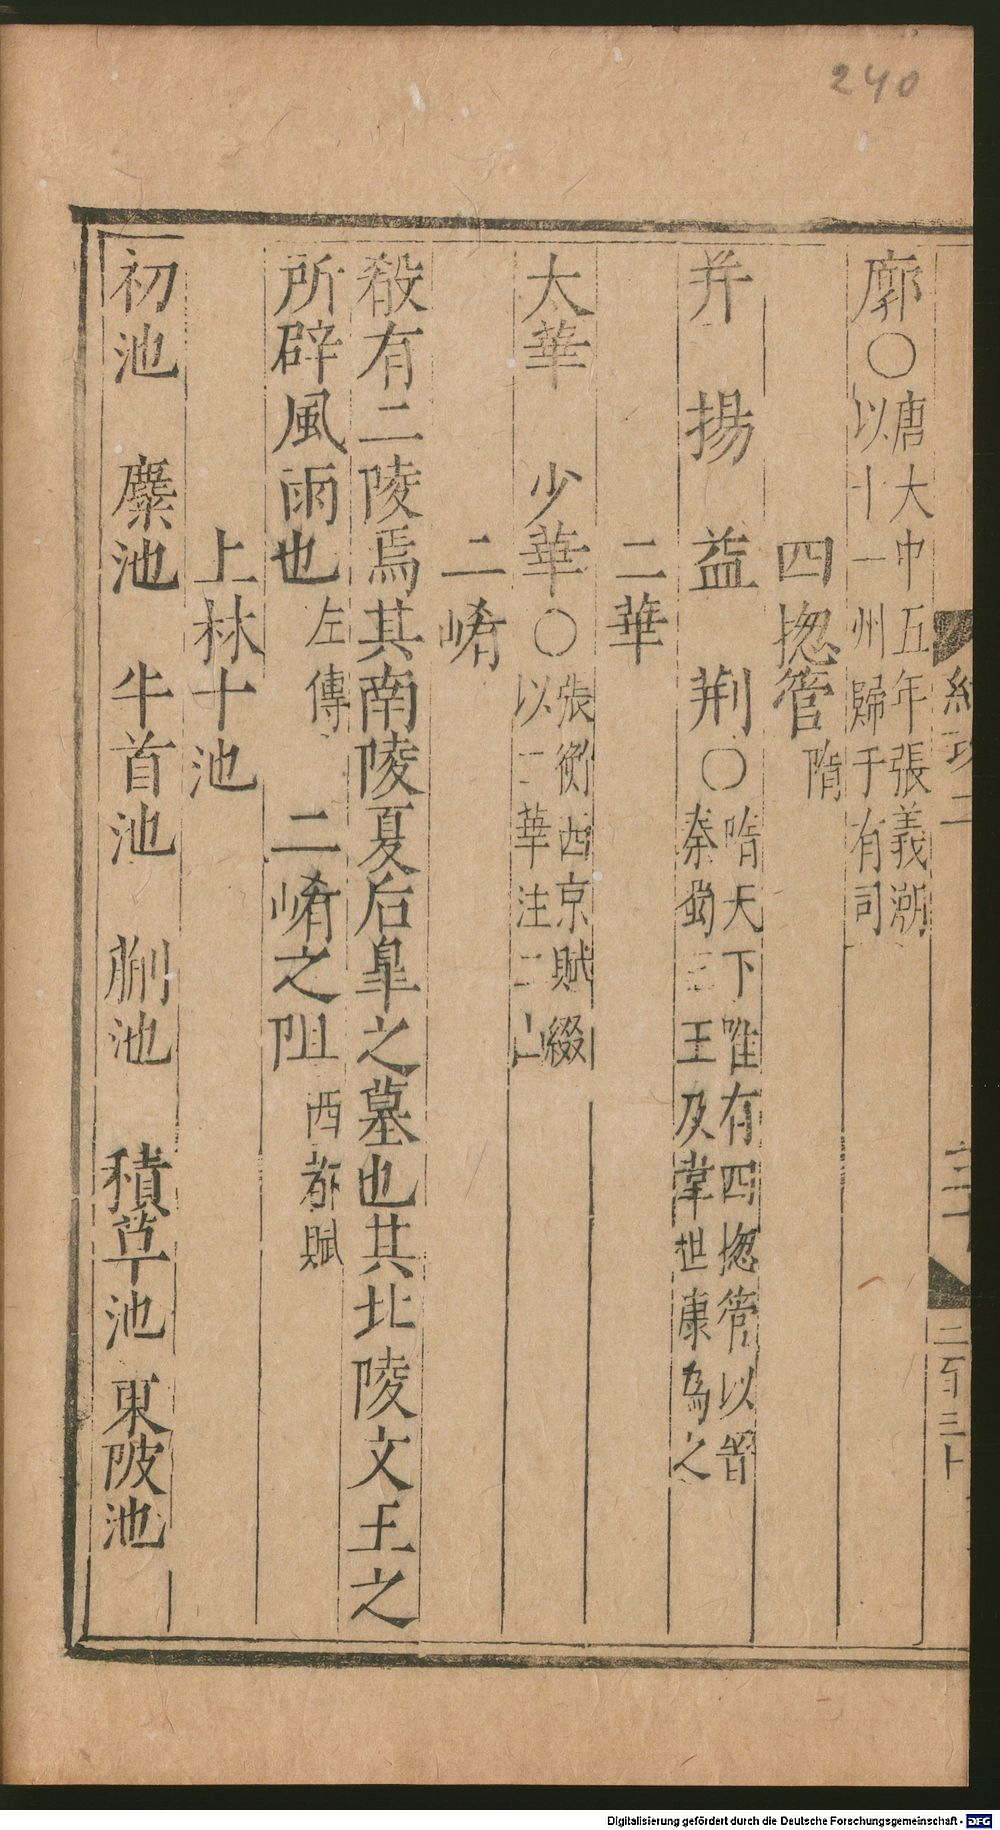 240
廓〇唐大中五年張義潮
以十一州歸于有司
四揔管隋
并 揚 益 荆〇隋天下唯有四揔管以晋
秦蜀三王及韋世康為之
二華
太華 少華〇張衡西京賦綴
以二華注二山
二崤
殽有二陵焉其南陵夏后皐之墓也其北陵文王之
所辟風雨也左傳 二崤之阻西都賦
上林十池
初池 麋池 牛首池 蒯池 積草池 東陂池
二百三十
Digitalisierung gefördert durch die Deutsche Forschungsgemeinschaft - DFG